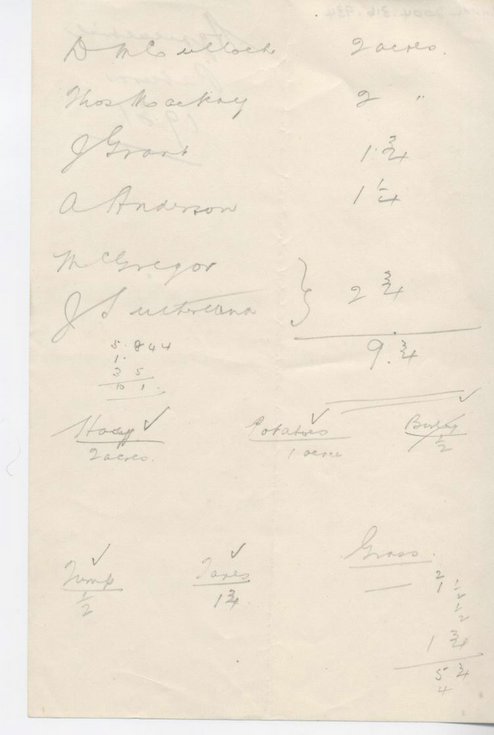 2004 316 934
D McCulloch 2 acres.
Thos Mackay 2 "
J Grant 1 3/4
A Anderson 1 1/4
McGregor
J Sutherland } 2 3/4
9 3/4
5. 8 4 4
1.
3 5
10 1.
Hay ✓ Potatoes ✓ Barley ✓
2 acres. 1 acre 1/2
Turnip ✓ Tares ✓ Grass.
1/2 1 3/4
2
1 1/2
1/2
1 3/4
5 3/4
4